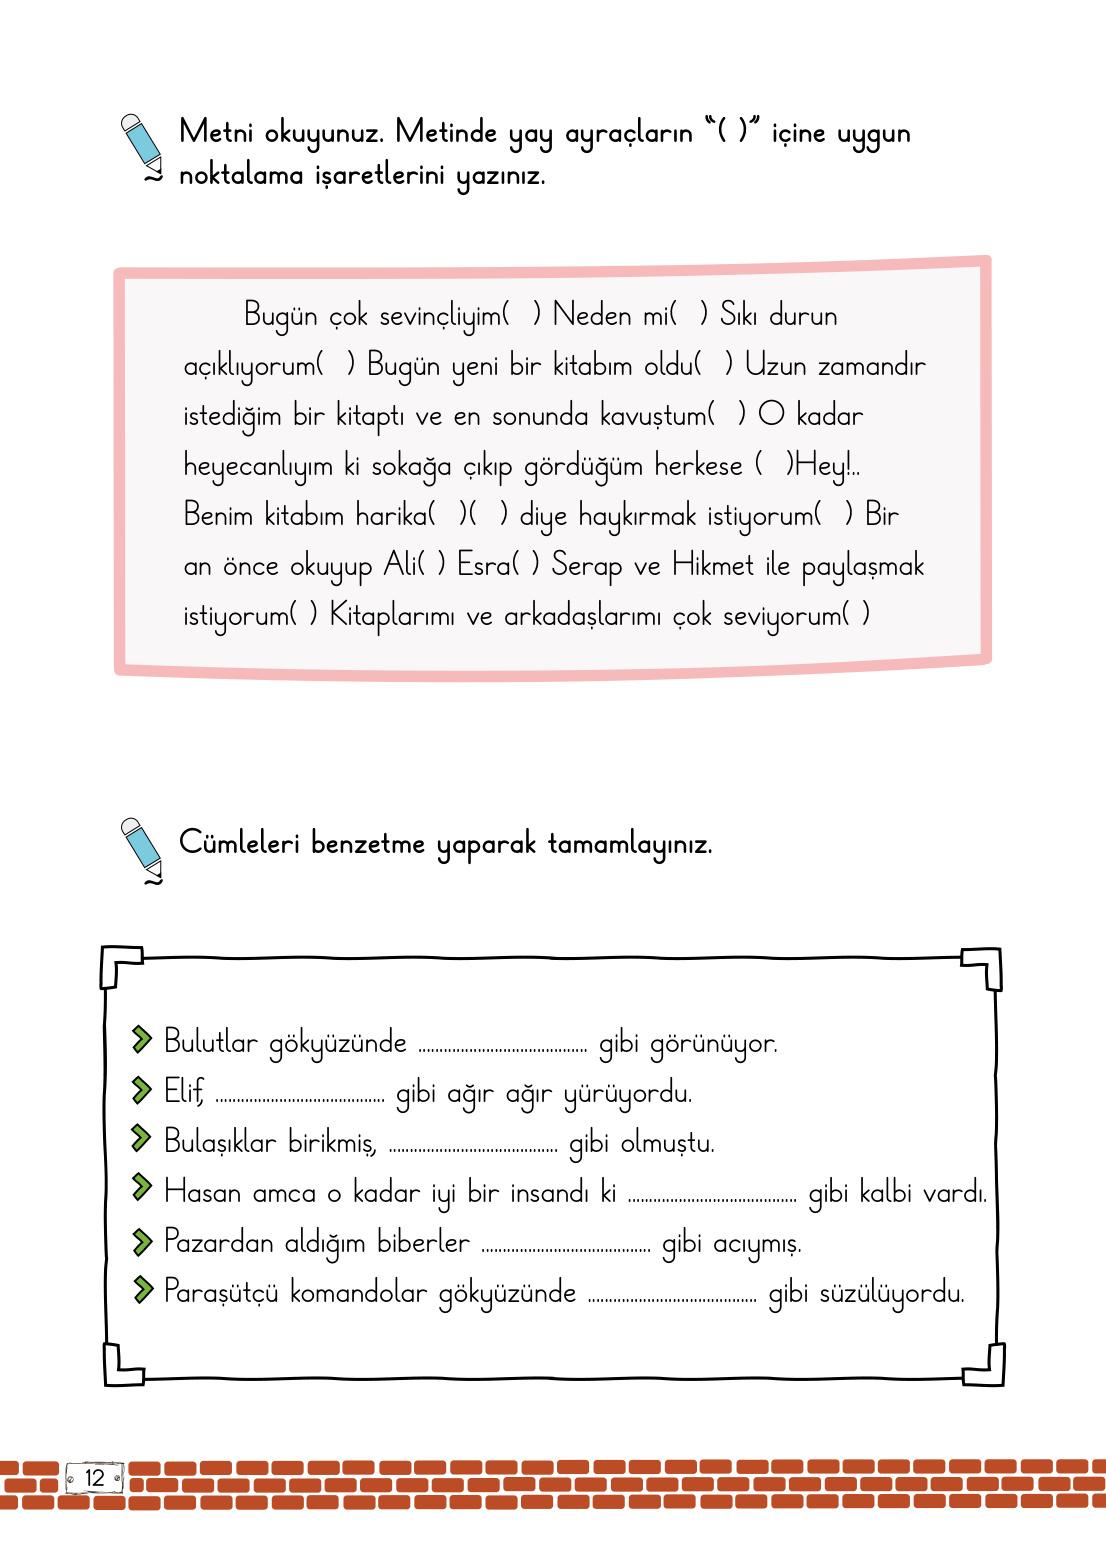 Metni okuyunuz. Metinde yay ayraçların “( )” içine uygun
noktalama işaretlerini yazınız.
Bugün çok sevinçliyim(  ) Neden mi(  ) Sıkı durun
açıklıyorum(  ) Bugün yeni bir kitabım oldu(  ) Uzun zamandır
istediğim bir kitaptı ve en sonunda kavuştum(  ) O kadar
heyecanlıyım ki sokağa çıkıp gördüğüm herkese (  )Hey!..
Benim kitabım harika(  )(  ) diye haykırmak istiyorum(  ) Bir
an önce okuyup Ali( ) Esra( ) Serap ve Hikmet ile paylaşmak
istiyorum( ) Kitaplarımı ve arkadaşlarımı çok seviyorum( )
Cümleleri benzetme yaparak tamamlayınız.
Bulutlar gökyüzünde ........................................ gibi görünüyor.
Elif, ........................................ gibi ağır ağır yürüyordu.
Bulaşıklar birikmiş, ........................................ gibi olmuştu.
Hasan amca o kadar iyi bir insandı ki ........................................ gibi kalbi vardı.
Pazardan aldığım biberler ........................................ gibi acıymış.
Paraşütçü komandolar gökyüzünde ........................................ gibi süzülüyordu.
12